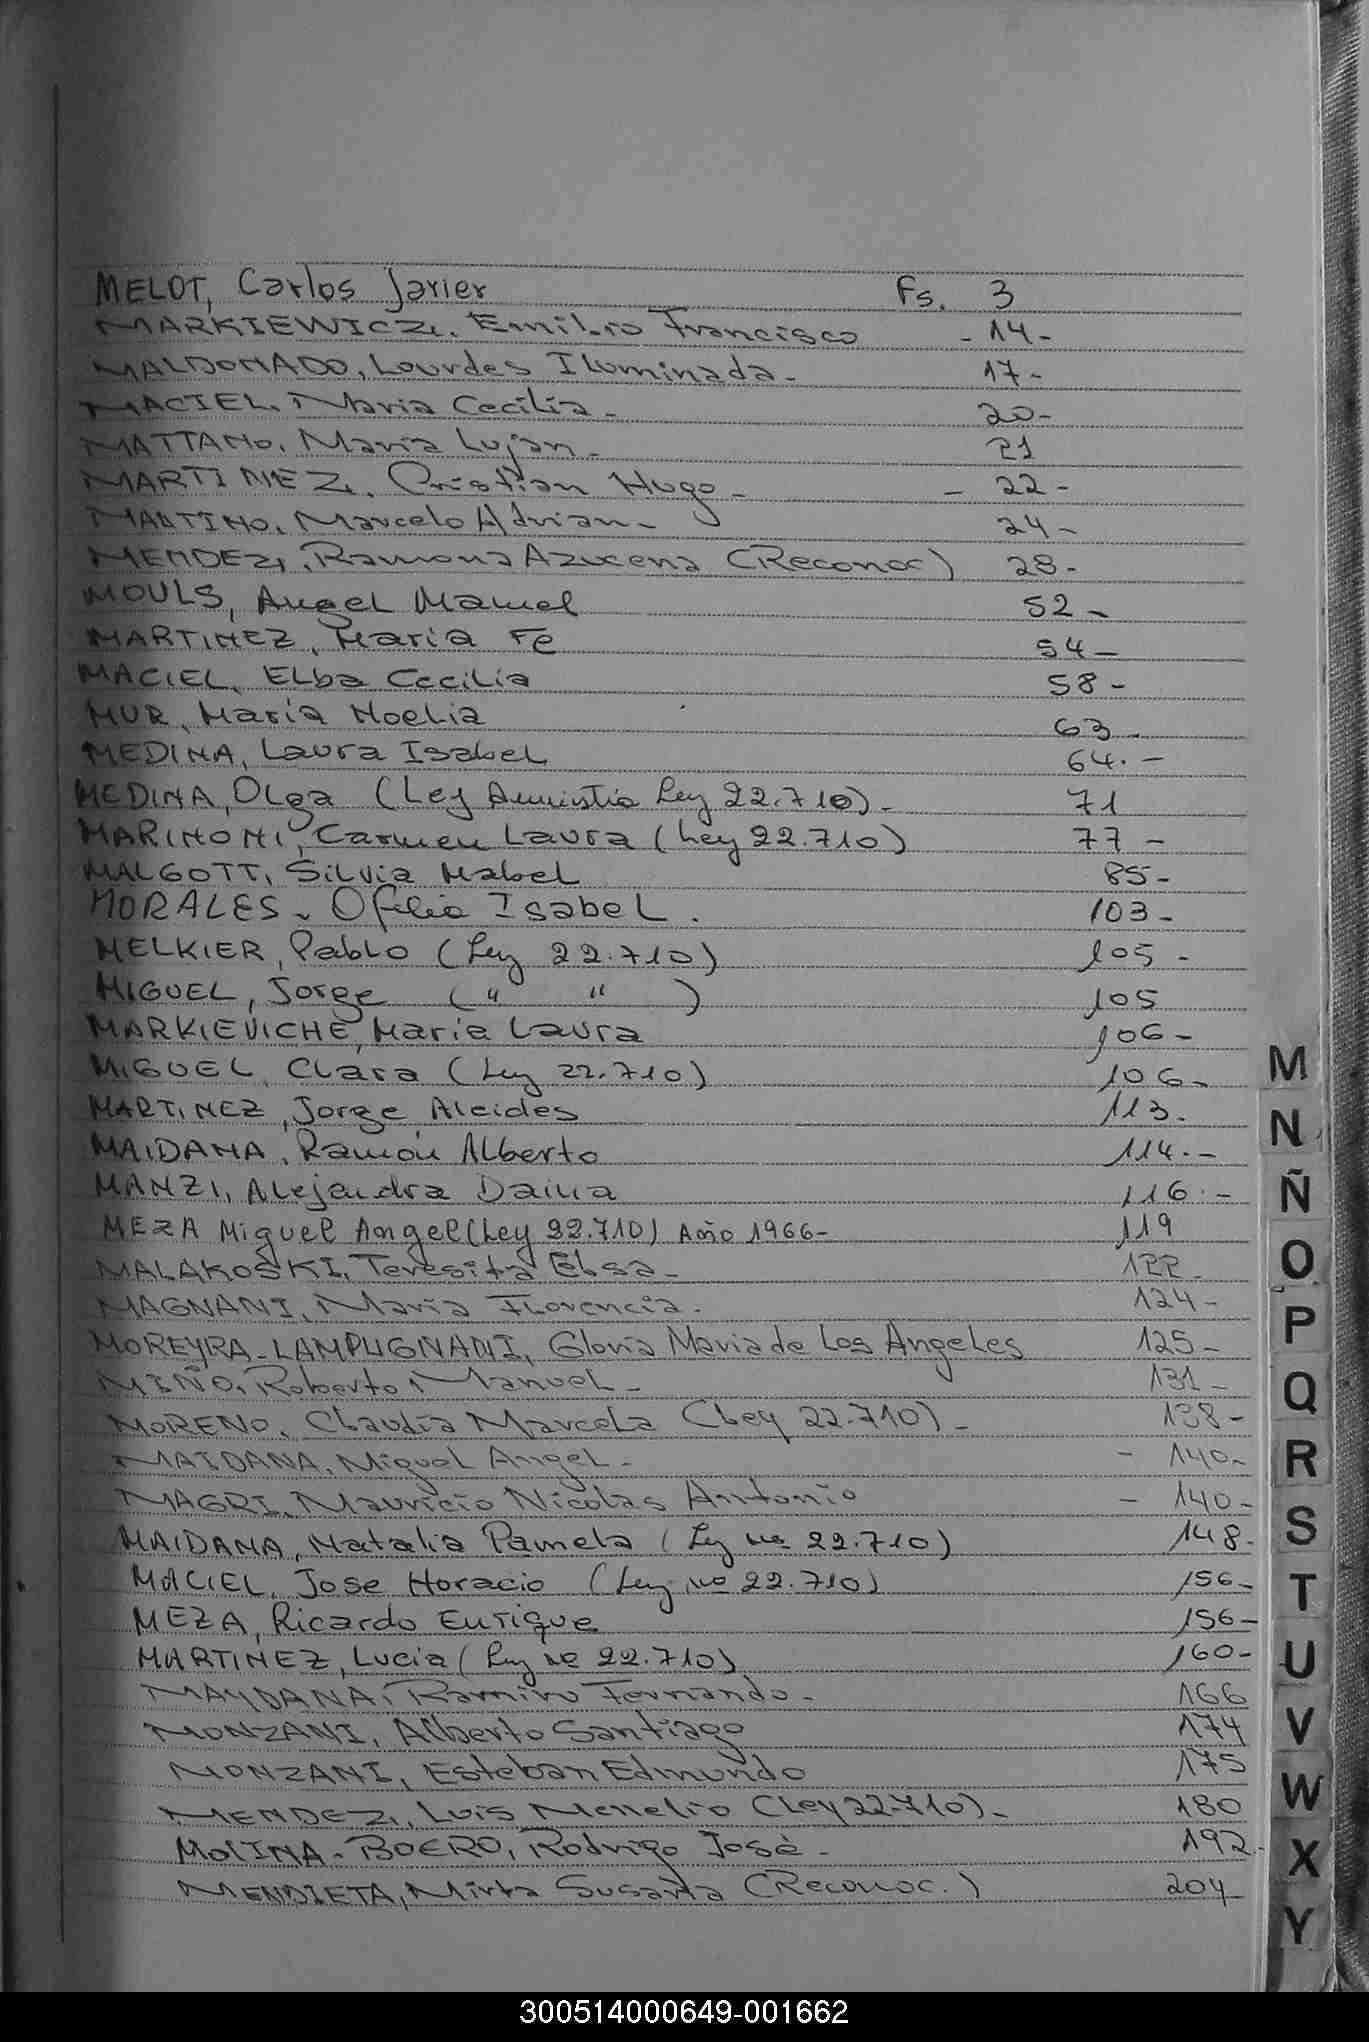 MELOT, Carlos Javier Fs. 3
MARKIEWICZ, Emilio Francisco - 14 -
MALDONADO, Lourdes Iluminada - 17 -
MACIEL, Maria Cecilia - 20 -
MATTANO, Maria Lujan - 21
MARTINEZ, Cristian Hugo - - 22 -
MARTINO, Marcelo Adrian - 24 -
MENDEZ, Ramona Azucena (Reconoc) 28 -
MOULS, Angel Manuel 52 -
MARTINEZ, Maria Fe 54 -
MACIEL, Elba Cecilia 58 -
MUR, Maria Noelia 63 -
MEDINA, Laura Isabel 64. -
MEDINA, Olga (Ley Amnistia Ley 22.710). 71
MARINONI, Carmen Laura (Ley 22.710) 77 -
MALGOTT, Silvia Mabel 85 -
MORALES, Ofelia Isabel. 103 -
MELKIER, Pablo (Ley 22.710) 105 -
MIGUEL, Jorge ( " " ) 105
MARKIEVICHE, Maria Laura 106 -
MIGUEL, Clara (Ley 22.710) 106 -
MARTINEZ, Jorge Alcides 113 -
MAIDANA, Ramón Alberto 114. -
MANZI, Alejandra Daina 116. -
MEZA Miguel Angel (Ley 22.710) Año 1966 - 119
MALAKOSKI, Teresita Elsa - 122 -
MAGNANI, Maria Florencia. 124 -
MOREYRA-LAMPUGNANI, Gloria Maria de Los Angeles 125 -
MIÑO, Roberto Manuel - 131 -
MORENO, Claudia Marcela (Ley 22.710) - 138 -
MAIDANA, Miguel Angel - - 140 -
MAGRI, Mauricio Nicolas Antonio - 140 -
MAIDANA, Natalia Pamela (Ley no 22.710) 148 -
MACIEL, Jose Horacio (Ley no 22.710) 156 -
MEZA, Ricardo Enrique 156 -
MARTINEZ, Lucia (Ley no 22.710) 160 -
MAYDANA, Ramiro Fernando - 166
MONZANI, Alberto Santiago 174
MONZANI, Esteban Edmundo 175
MENDEZ, Luis Menelio (Ley 22.710) - 180
MOLINA-BOERO, Rodrigo José - 192 -
MENDIETA, Mirta Susana (Reconoc.) 204 -
M
N
Ñ
O
P
Q
R
S
T
U
V
W
X
Y
300514000649-001662